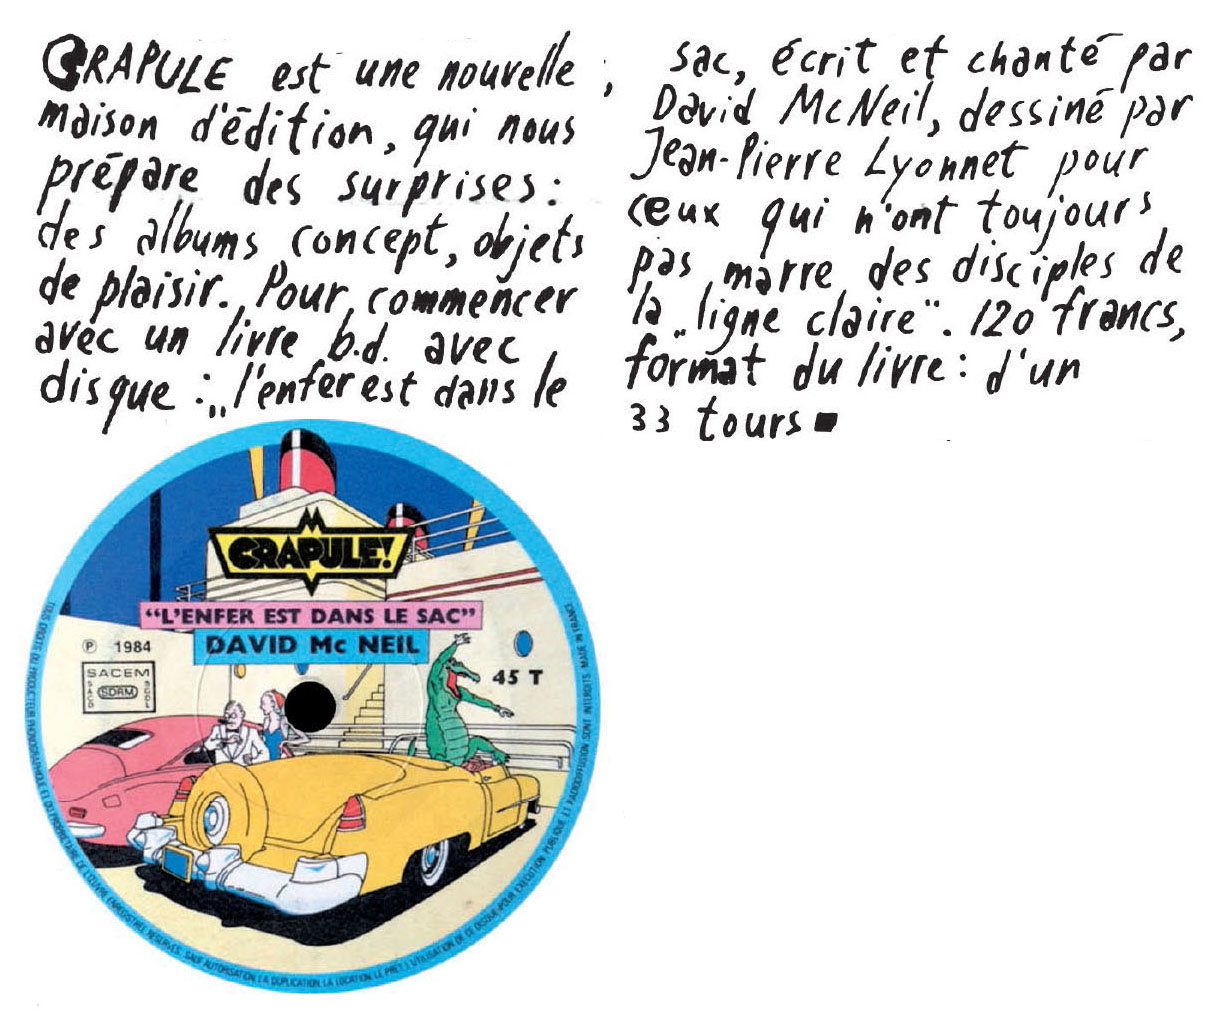 CRAPULE est une nouvelle
maison d'édition, qui nous
prépare des surprises :
des albums concept, objets
de plaisir. Pour commencer
avec un livre b.d. avec
disque : „l'enfer est dans le
sac, écrit et chanté par
David McNeil, dessiné par
Jean-Pierre Lyonnet pour
ceux qui n'ont toujours
pas marre des disciples de
la „ligne claire". 120 francs,
format du livre : d'un
33 tours ■
CRAPULE!
"L'ENFER EST DANS LE SAC"
DAVID Mc NEIL
℗ 1984
45 T
SACEM
SACD SDRM SGDL
TOUS DROITS DU PRODUCTEUR PHONOGRAPHIQUE ET DU PROPRIETAIRE DE L'ŒUVRE ENREGISTREE RESERVES. SAUF AUTORISATION, LA DUPLICATION, LA LOCATION, LE PRET, L'UTILISATION DE CE DISQUE POUR EXECUTION PUBLIQUE ET RADIODIFFUSION SONT INTERDITS. MADE IN FRANCE